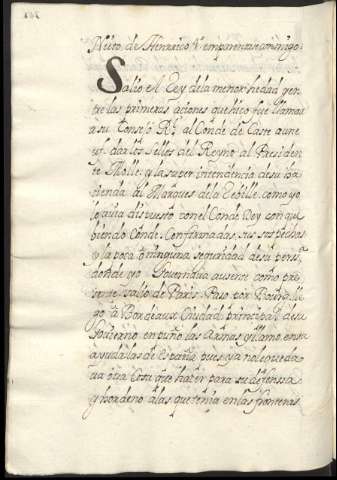 Nieto de Henrrico 4º emparentase conmigo.
Salio el Rey dela menor hedad y en
tre las primeras aciones que hiço fue llamar
a su Consejo Rl. al Conde de Caste aune
uf. dar los Selles del Reyno al Presiden
te Molle. y la super intendencia de su ha
cienda al Marques de la Vebille. como yo
lo auia dispuesto con el Conde Rey con que
biendo Conde. Confirmadas sus sospechas
y la poca o ninguna seguridad de su persª.
donde yo Gouernaua ausente como pre
sente salio de Paris. Paso por Bourg. lle
go a Bordeaux Ciudad principal de su
Gouierno empuño las Armas y llamo en su
ayuda las de España pues ya no le queda
ua otra cosa que haçer para su defenssa
y hordeno a las que tenia en las fronteras